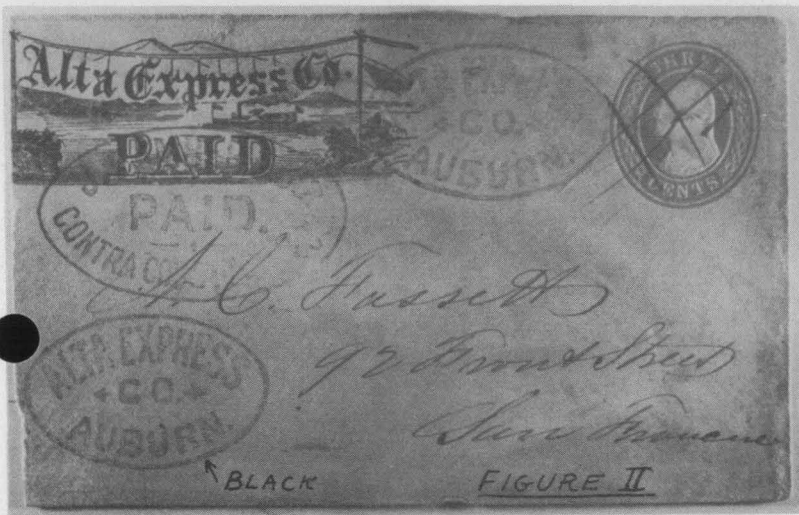 Alta Express Co.
PAID
EXPRESS
CO.
AUBURN.
THREE
CENTS
PAID.
CONTRA CO
A. C. Fassett
92 Front Street
San Francisco
ALTA EXPRESS
CO.
AUBURN.
BLACK
FIGURE II